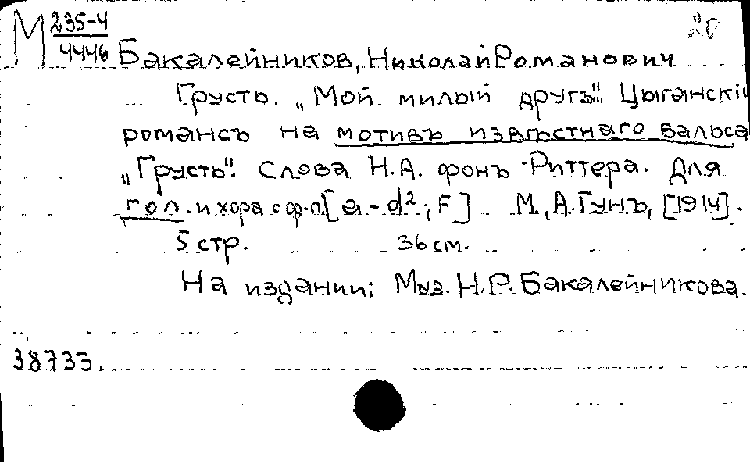 М 235-4
4446
20
Бакалейников, Николай Романович
Грусть. „Мой милый другъ". Цыганскiй
романсъ на мотивъ извѣстнаго вальса
„Грусть". Слова Н.А. фонъ-Риттера. Для
гол. и хора с ф-п [a-d²; F] М., А. Гунъ, [1914].
5 стр. 36 см.
На издании: Муз. Н.Р. Бакалейникова.
38733.